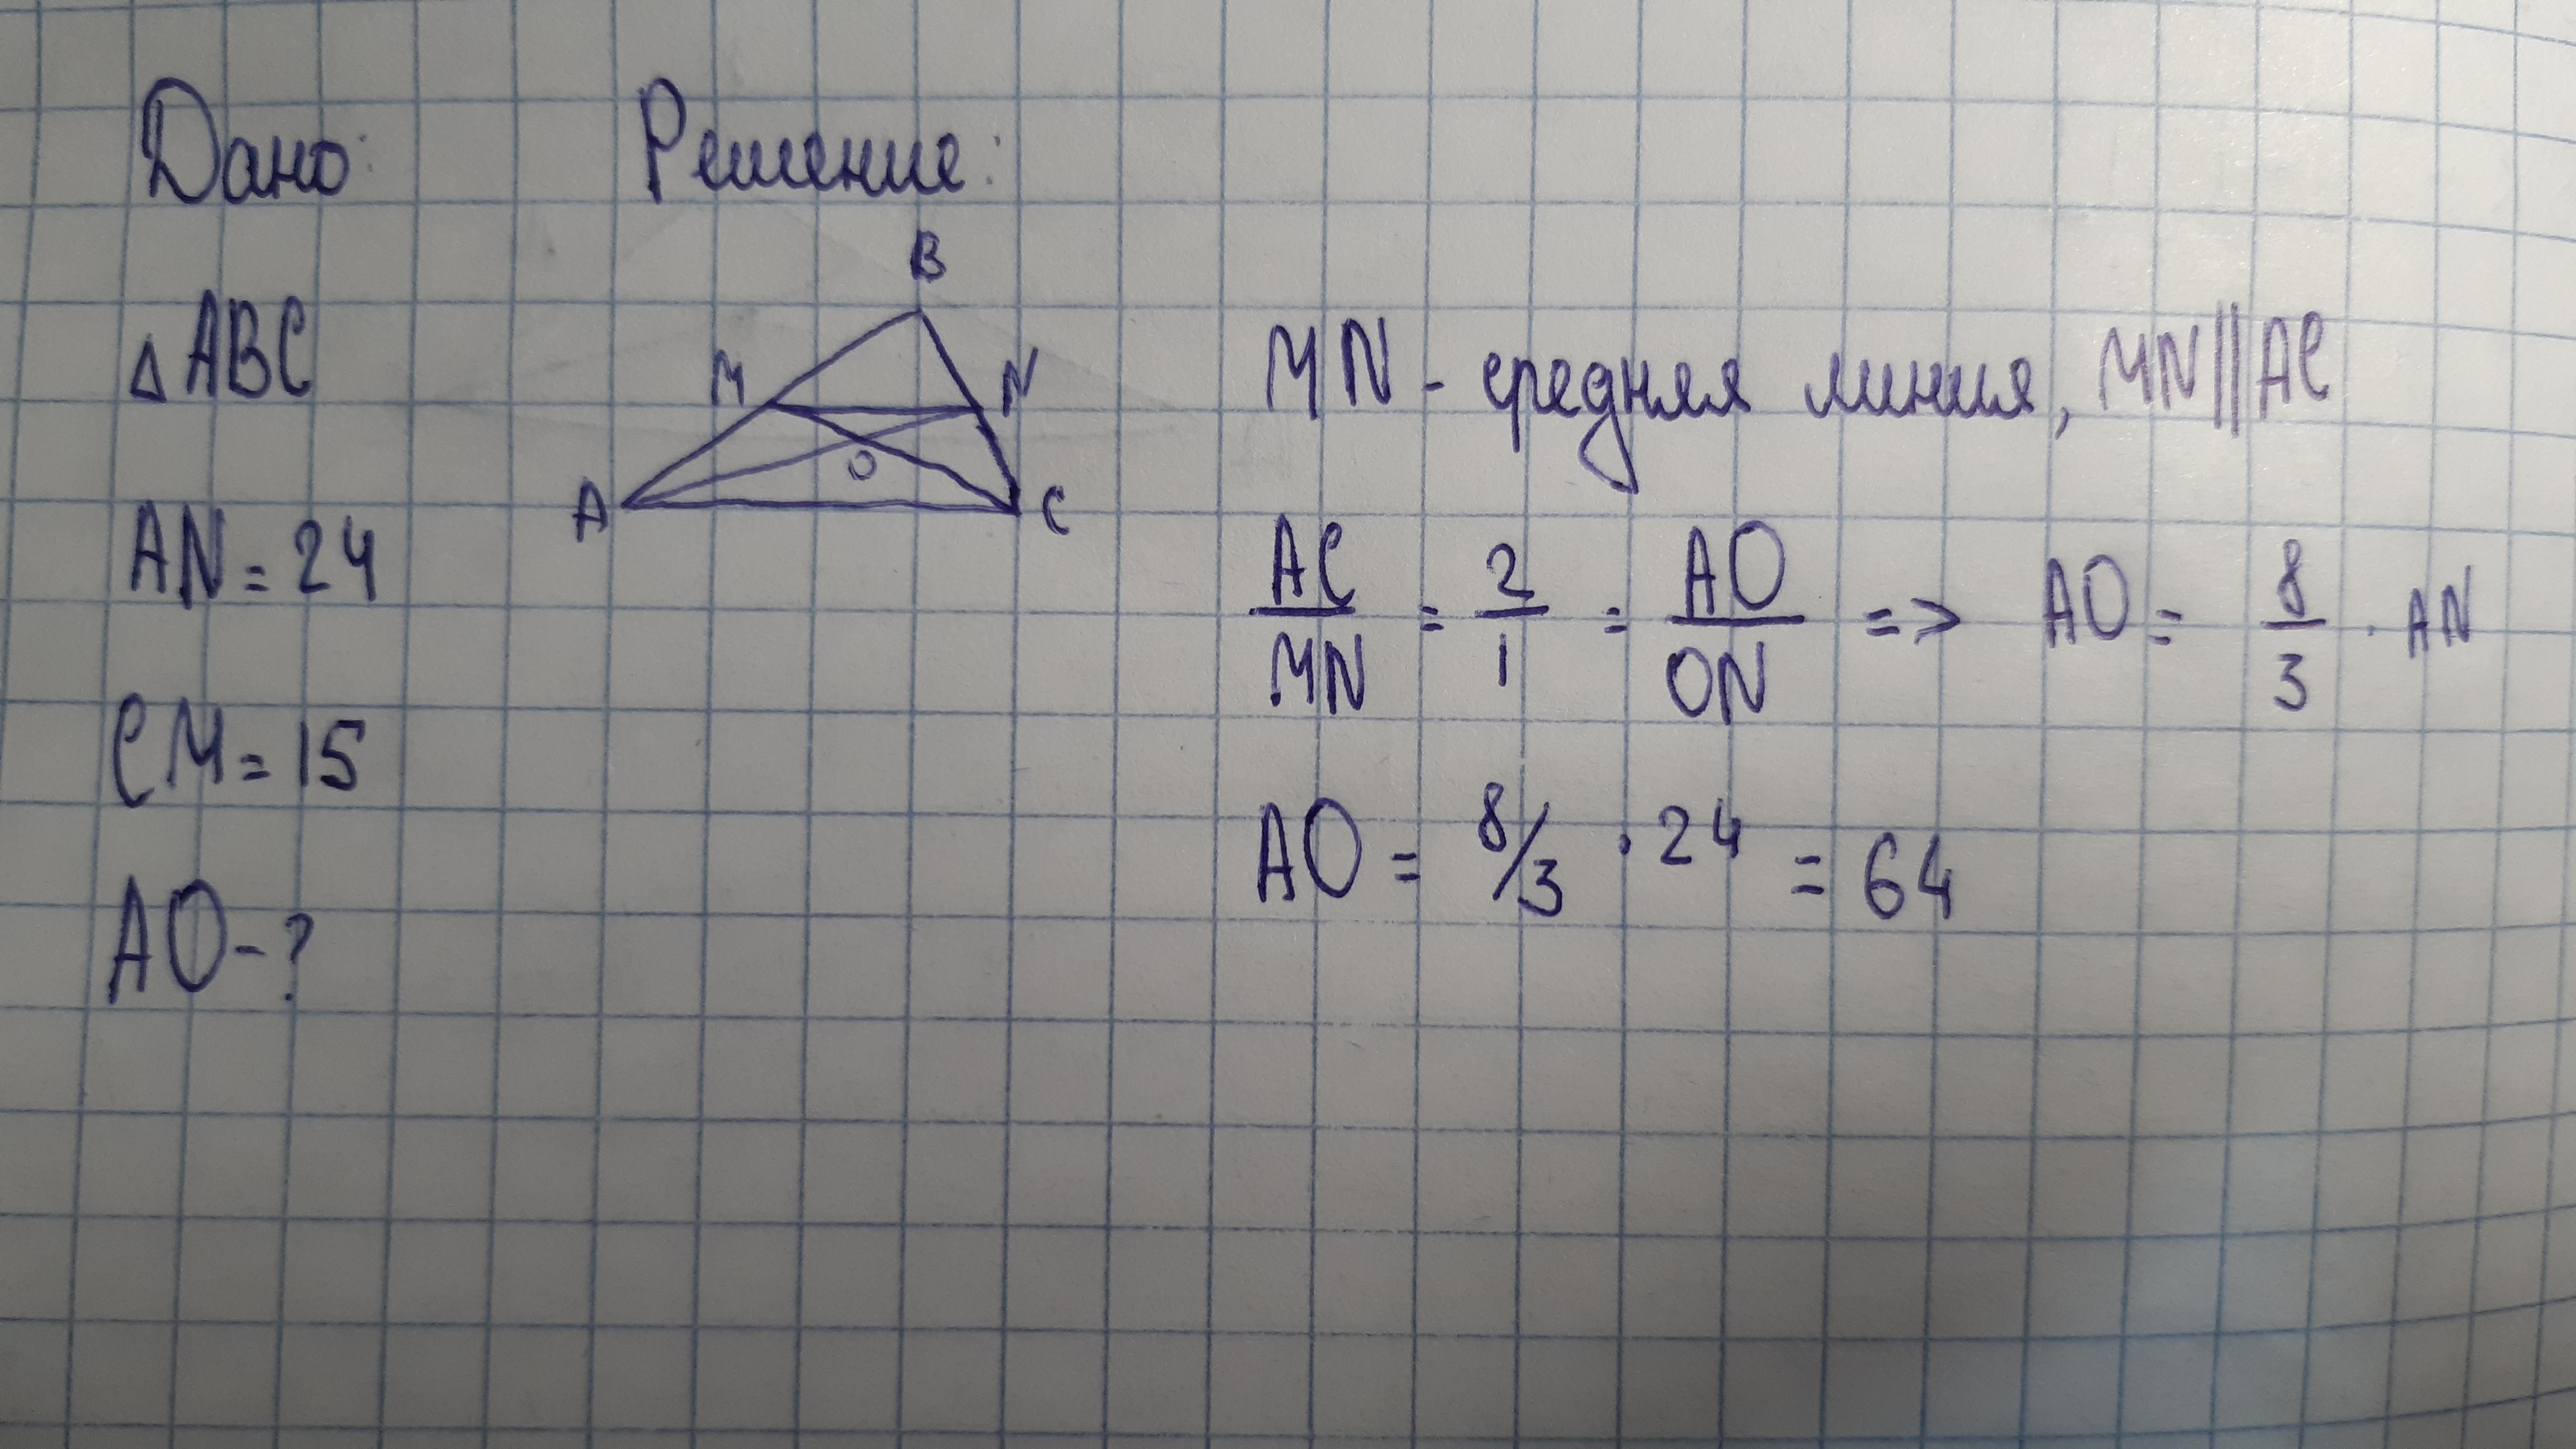 Дано:
Решение:
△ABC
AN = 24
CM = 15
AO - ?
B
M
N
O
A
C
MN - средняя линия, MN || AC
AC/MN = 2/1 = AO/ON => AO = 8/3 · AN
AO = 8/3 · 24 = 64